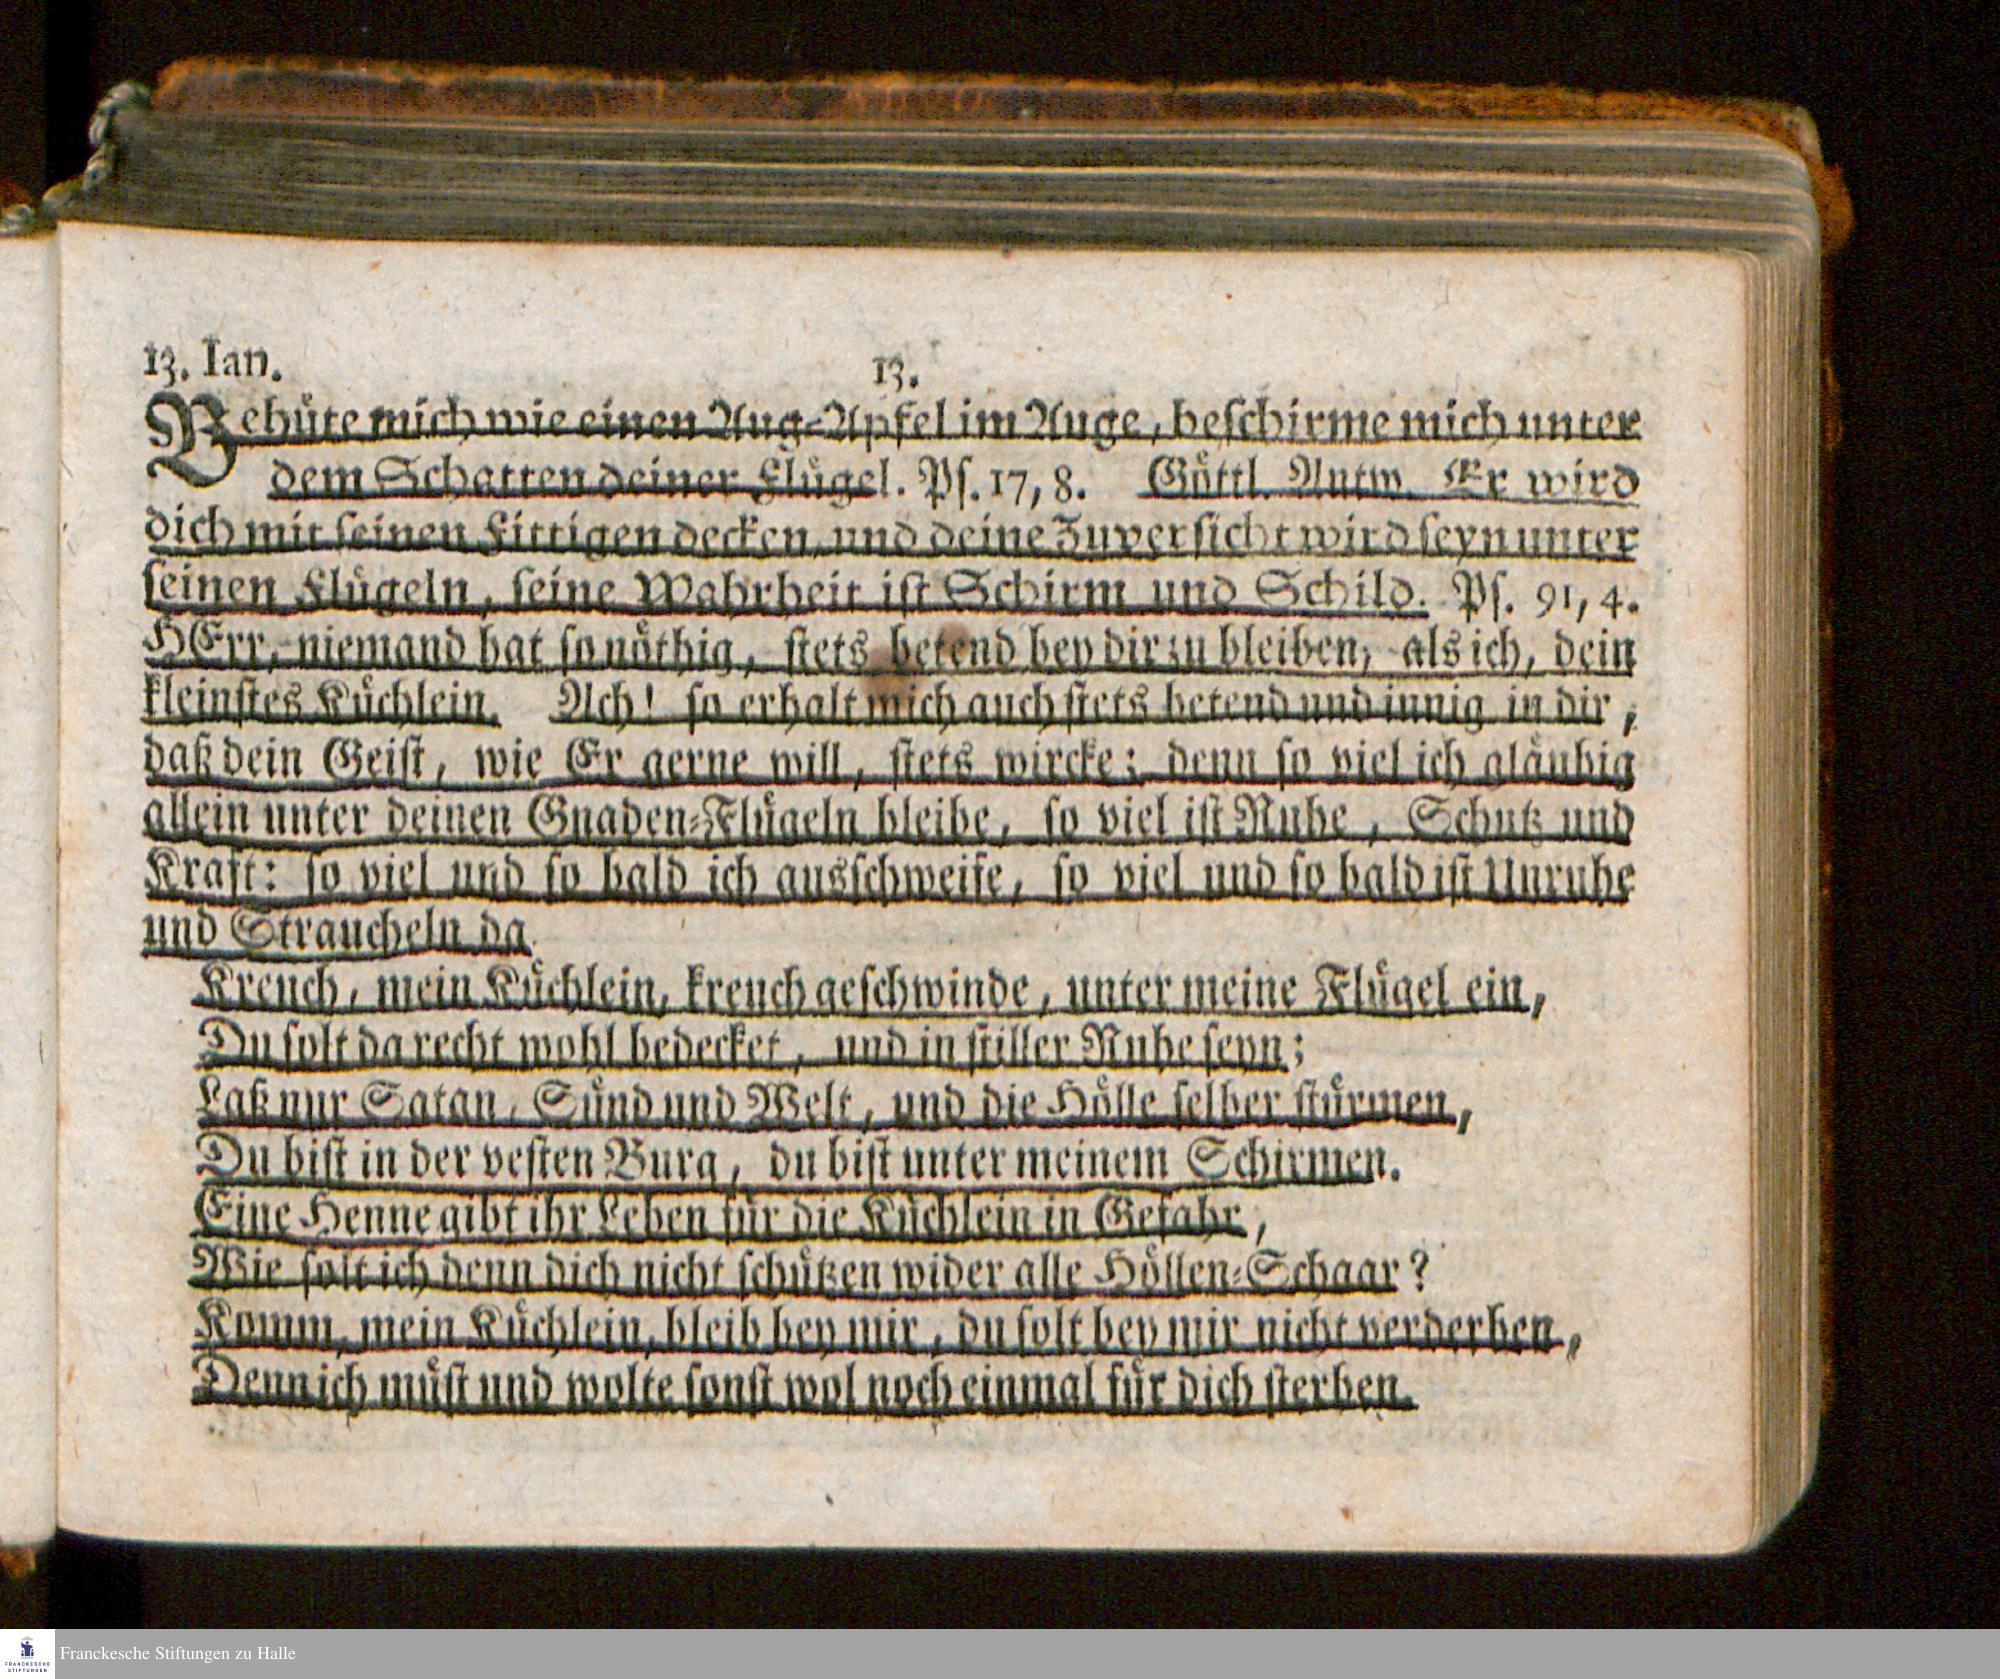 13. Ian.
13.
Behüte mich wie einen Aug-Apfel im Auge, beschirme mich unter
dem Schatten deiner Flügel. Ps. 17, 8. Göttl. Antw. Er wird
dich mit seinen Fittigen decken, und deine Zuversicht wird seyn unter
seinen Flügeln, seine Wahrheit ist Schirm und Schild. Ps. 91, 4.
HErr, niemand hat so nöthig, stets betend bey dir zu bleiben, als ich, dein
kleinstes Küchlein. Ach! so erhalt mich auch stets betend und innig in dir,
daß dein Geist, wie Er gerne will, stets wircke; denn so viel ich gläubig
allein unter deinen Gnaden-Flügeln bleibe, so viel ist Ruhe, Schutz und
Kraft: so viel und so bald ich ausschweife, so viel und so bald ist Unruhe
und Straucheln da.
Kreuch, mein Küchlein, kreuch geschwinde, unter meine Flügel ein,
Du solt da recht wohl bedecket, und in stiller Ruhe seyn;
Laß nur Satan, Sünd und Welt, und die Hölle selber stürmen,
Du bist in der vesten Burg, du bist unter meinem Schirmen.
Eine Henne gibt ihr Leben für die Küchlein in Gefahr,
Wie solt ich denn dich nicht schützen wider alle Höllen-Schaar?
Komm, mein Küchlein, bleib bey mir, du solt bey mir nicht verderben,
Denn ich müst und wolte sonst wol noch einmal für dich sterben.
FRANCKESCHE
STIFTUNGEN
Franckesche Stiftungen zu Halle